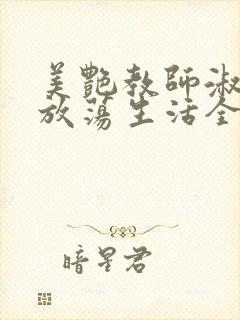 美艷教師淑
放蕩生活全
暗星君